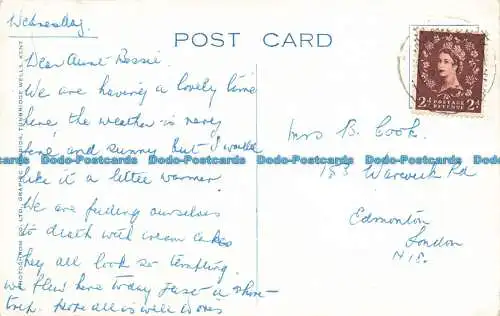 Wednesday.
POST CARD
Dear Aunt Bessie.
We are having a lovely time
here the weather is very
and sunny but I would
like it a little warmer.
We are feeding ourselves
to death with cream cakes
they all look so tempting.
we flew here today just a short
trip. Hope all is well
2D POSTAGE REVENUE 2D
Mrs B. Cook.
Warwick Rd
Edmonton
London
N.18.
Dodo-Postcards Dodo-Postcards Dodo-Postcards Dodo-Postcards
PHOTOCHROM CO. LTD., GRAPHIC TUNBRIDGE WELLS, KENT